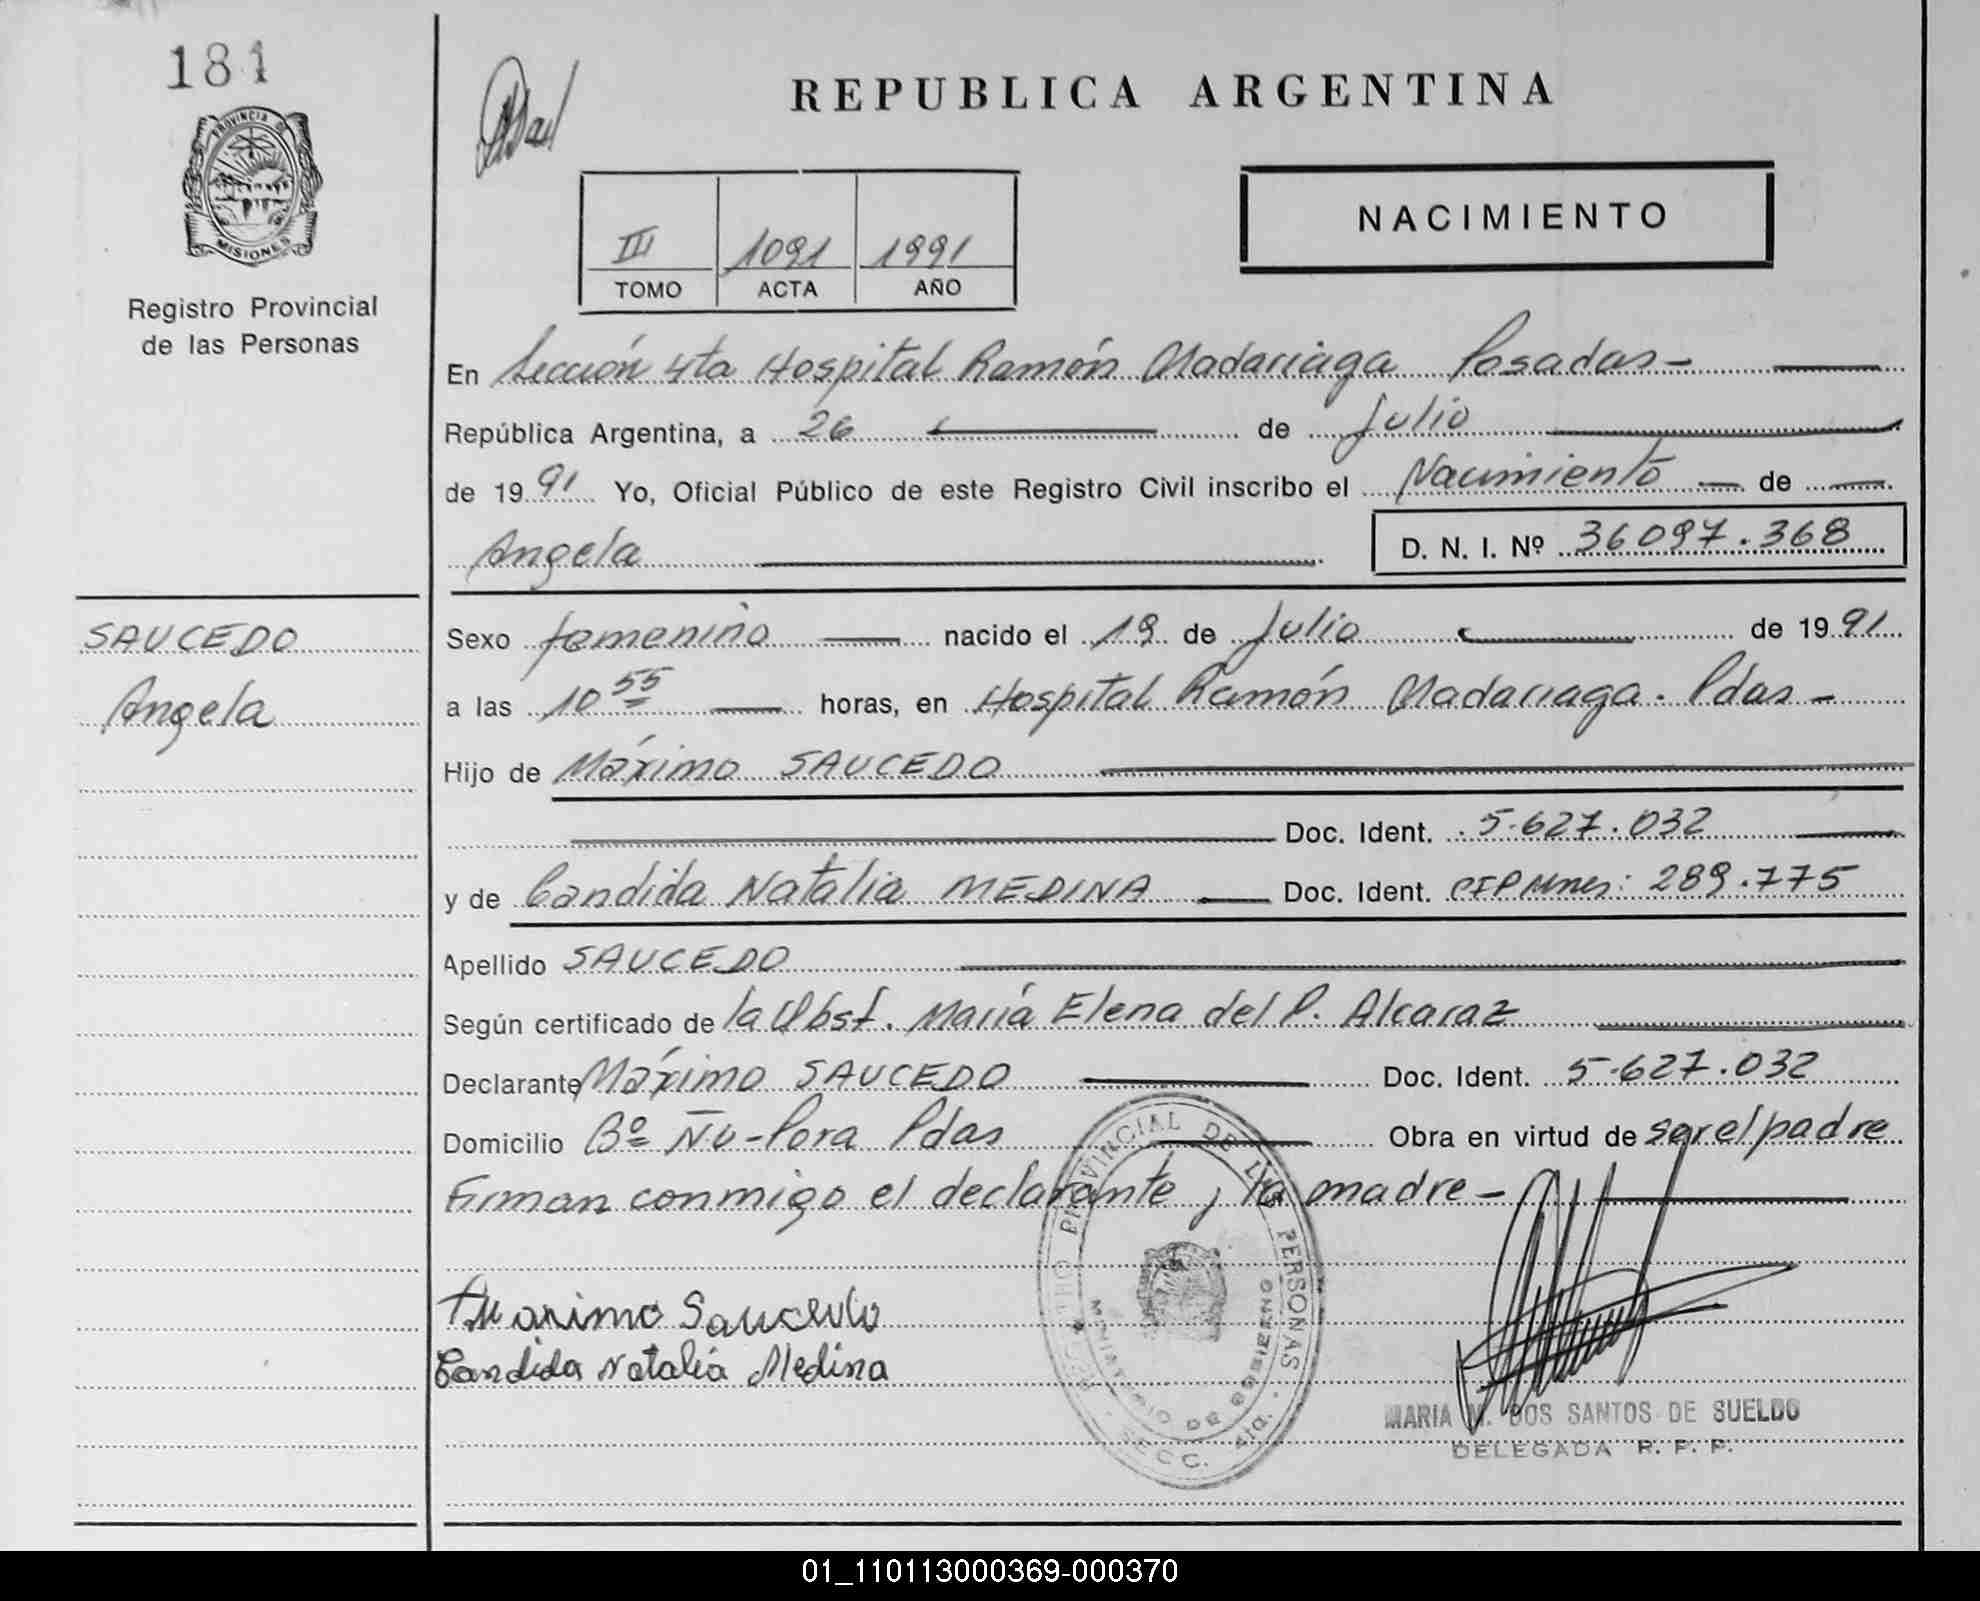 181
PROVINCIA DE
MISIONES
Registro Provincial
de las Personas
SAUCEDO
Angela
REPUBLICA ARGENTINA
III 1091 1991
TOMO ACTA AÑO
NACIMIENTO
En Sección 4ta Hospital Ramón Madariaga Posadas-
República Argentina, a 26 de Julio
de 1991 Yo, Oficial Público de este Registro Civil inscribo el Nacimiento de
Angela D. N. I. Nº 36097.368
Sexo femenino nacido el 19 de Julio de 1991
a las 10 55 horas, en Hospital Ramón Madariaga. Pdas-
Hijo de Máximo SAUCEDO
Doc. Ident. 5.627.032
y de Candida Natalia MEDINA Doc. Ident. CIP Mnes: 289.775
Apellido SAUCEDO
Según certificado de la Obst. María Elena del P. Alcaraz
Declarante Máximo SAUCEDO Doc. Ident. 5.627.032
Domicilio Bº Ñu-Pora Pdas Obra en virtud de ser el padre
Firman conmigo el declarante y la madre-
Maximo Saucedo
Candida Natalia Medina
REGISTRO PROVINCIAL DE LAS PERSONAS
MINISTERIO DE GOBIERNO
SECC. 4ta.
MARIA N. DOS SANTOS DE SUELDO
DELEGADA R. P. P.
01_110113000369-000370